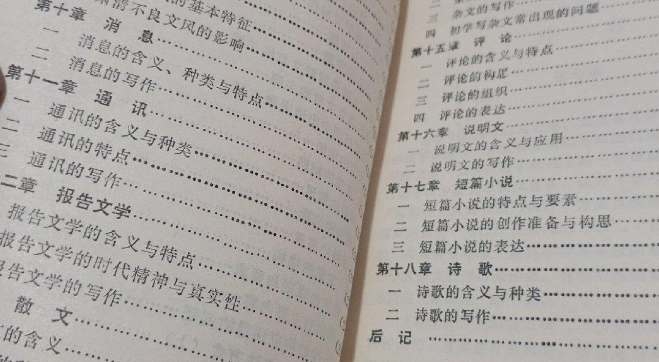 的基本特征
清不良文风的影响
第十章 消 息
一 消息的含义、种类与特点
二 消息的写作
第十一章 通 讯
一 通讯的含义与种类
二 通讯的特点
三 通讯的写作
二章 报告文学
报告文学的含义与特点
报告文学的时代精神与真实性
报告文学的写作
散 文
的含义
三 杂文的写作
四 初学写杂文常出现的问题
第十五章 评 论
一 评论的含义与特点
二 评论的构思
三 评论的组织
四 评论的表达
第十六章 说明文
一 说明文的含义与应用
二 说明文的写作
第十七章 短篇小说
一 短篇小说的特点与要素
二 短篇小说的创作准备与构思
三 短篇小说的表达
第十八章 诗 歌
一 诗歌的含义与种类
二 诗歌的写作
后 记